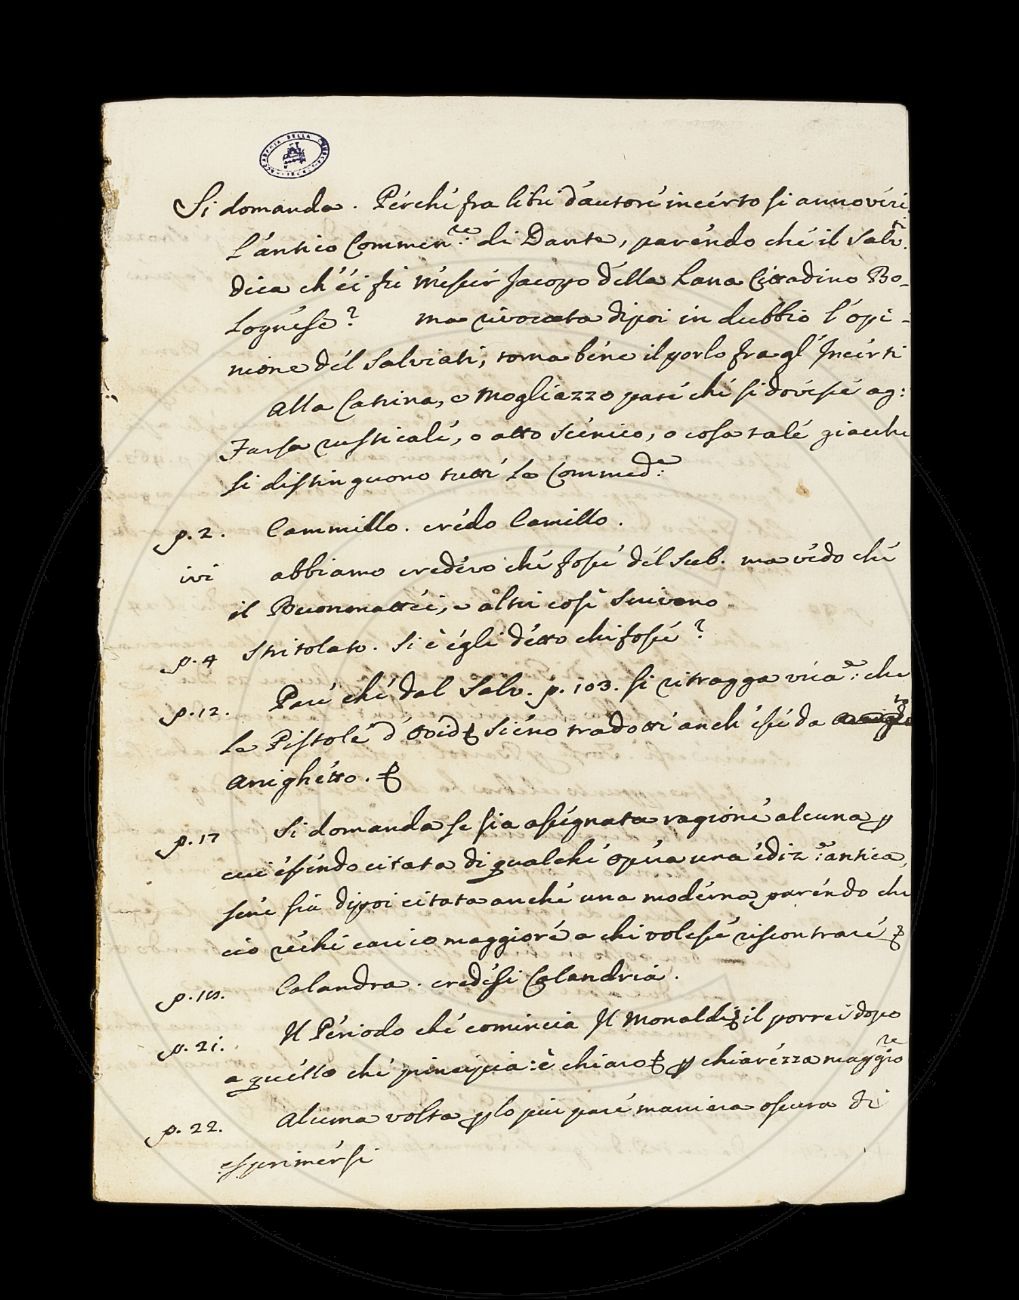 Si domanda. Perché fra libri d'autore incerto si annoveri
l'antico Commen.re di Dante, parendo che il Salv.ti
dica ch'ei fu Messer Jacopo della Lana Cittadino Bo-
lognese? Ma rivocata dipoi in dubbio l'opi-
nione del Salviati, torna bene il porlo fra gl'Incerti
Alla Catrina, e Mogliazzo pare che si dovesse ag:
Farsa rusticale, o atto scenico, o cosa tale giacche
si distinguono tutte le Commed:e
p. 2. Cammillo. credo Camillo.
ivi abbiamo credevo che fosse del sub. ma vedo che
il Buommattei, e altri così scrivono
p. 4 stritolato. Si è egli detto chi fosse?
p. 12. Pare che dal Salv. p. 103. si ritragga che
le Pistole d'Ovid sieno tradotte anch'esse da
Arrighetto.
p. 17 Si domanda se sia assegnata ragione alcuna p
cui essendo citata di qualche opera una ediz:e antica,
sene sia dipoi citata anche una moderna, parendo che
ciò rechi carico maggiore a chi volesse riscontrare
p. 18. Calandra. credesi Calandria.
p. 21. Il Periodo che comincia Il Monaldi il porrei dopo
a quello che principia: è chiaro p chiarezza maggiore
p. 22. Alcuna volta p lo più pare maniera oscura di
esprimersi